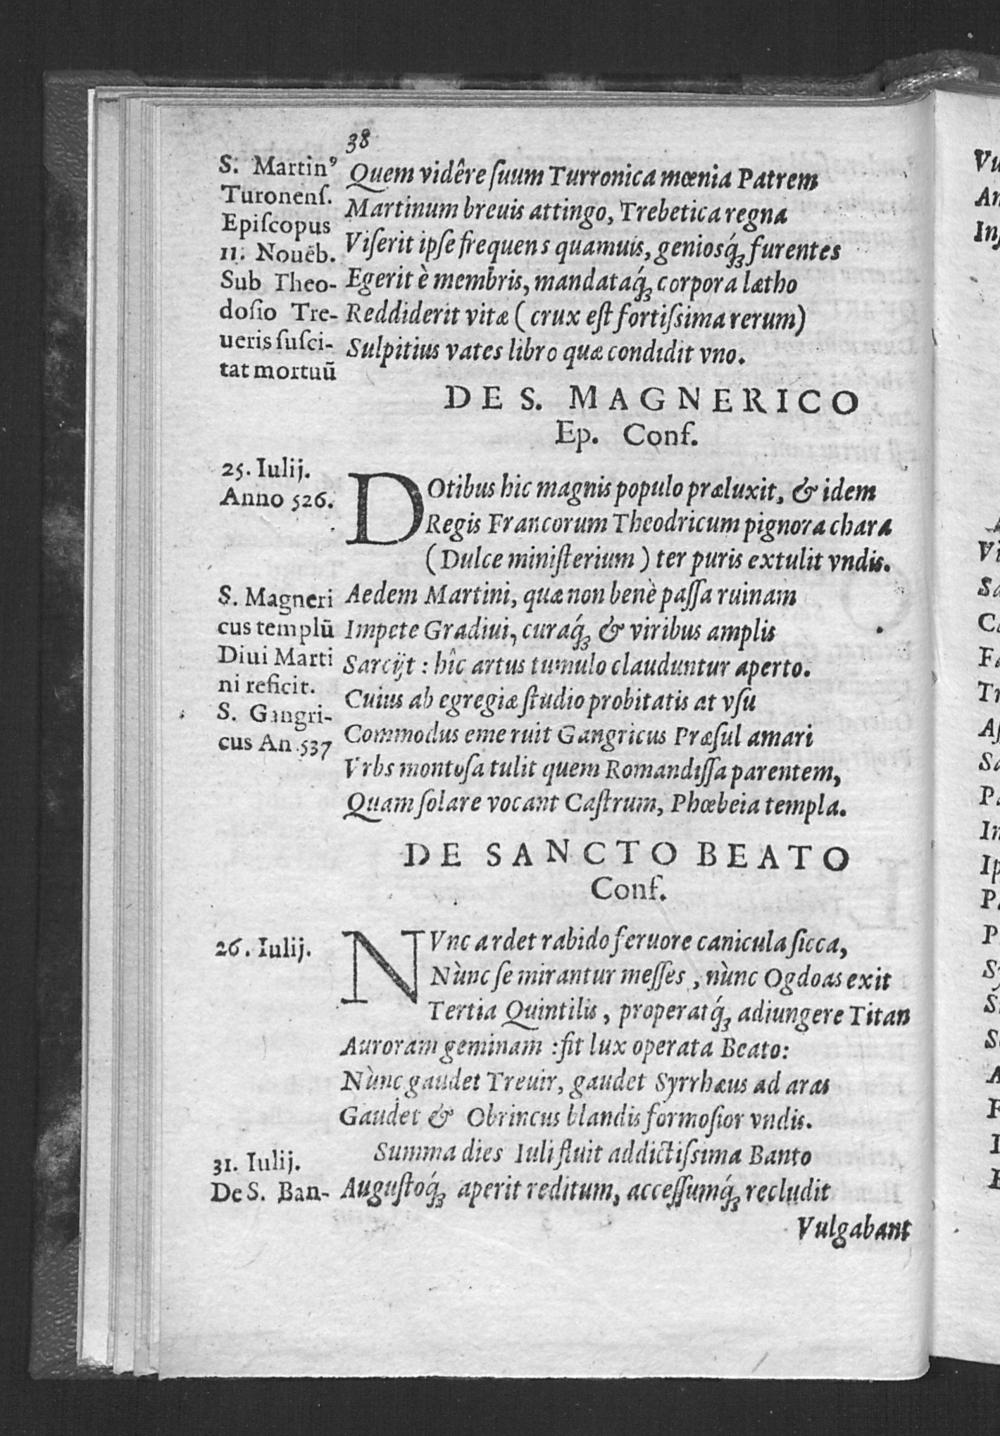 38
S. Martinꝰ
Turonenſ.
Epiſcopus
11. Nouēb.
Sub Theo-
doſio Tre-
ueris ſuſci-
tat mortuū
Quem vidêre ſuum Turronica mœnia Patrem
Martinum breuis attingo, Trebetica regna
Viſerit ipſe frequens quamuis, geniosq́ꝫ furentes
Egerit è membris, mandataq́ꝫ corpora lætho
Reddiderit vitæ ( crux eſt fortiſsima rerum)
Sulpitius vates libro quæ condidit vno.
DE S. MAGNERICO
Ep. Conf.
25. Iulij.
Anno 526.
DOtibus hic magnis populo præluxit, & idem
Regis Francorum Theodricum pignora chara
( Dulce miniſterium ) ter puris extulit vndis.
S. Magneri
cus templū
Diui Marti
ni reficit.
S. Gangri-
cus An. 537
Aedem Martini, quæ non benè paſſa ruinam
Impete Gradiui, curaq́ꝫ & viribus amplis
Sarcijt : hîc artus tumulo clauduntur aperto.
Cuius ab egregiæ ſtudio probitatis at vſu
Commodus emeruit Gangricus Præſul amari
Vrbs montoſa tulit quem Romandiſſa parentem,
Quam ſolare vocant Caſtrum, Phœbeia templa.
DE SANCTO BEATO
Conf.
26. Iulij.
NVnc ardet rabido feruore canicula ſicca,
Nùnc ſe mirantur meſſes, nùnc Ogdoas exit
Tertia Quintilis, properatq́ꝫ adiungere Titan
Auroram geminam : fit lux operata Beato:
Nùnc gaudet Treuir, gaudet Syrrhæus ad aras
Gaudet & Obrincus blandis formoſior vndis.
31. Iulij.
De S. Ban-
Summa dies Iuli fluit addictiſsima Banto
Auguſtoq́ꝫ aperit reditum, acceſſumq́ꝫ recludit
Vulgabant